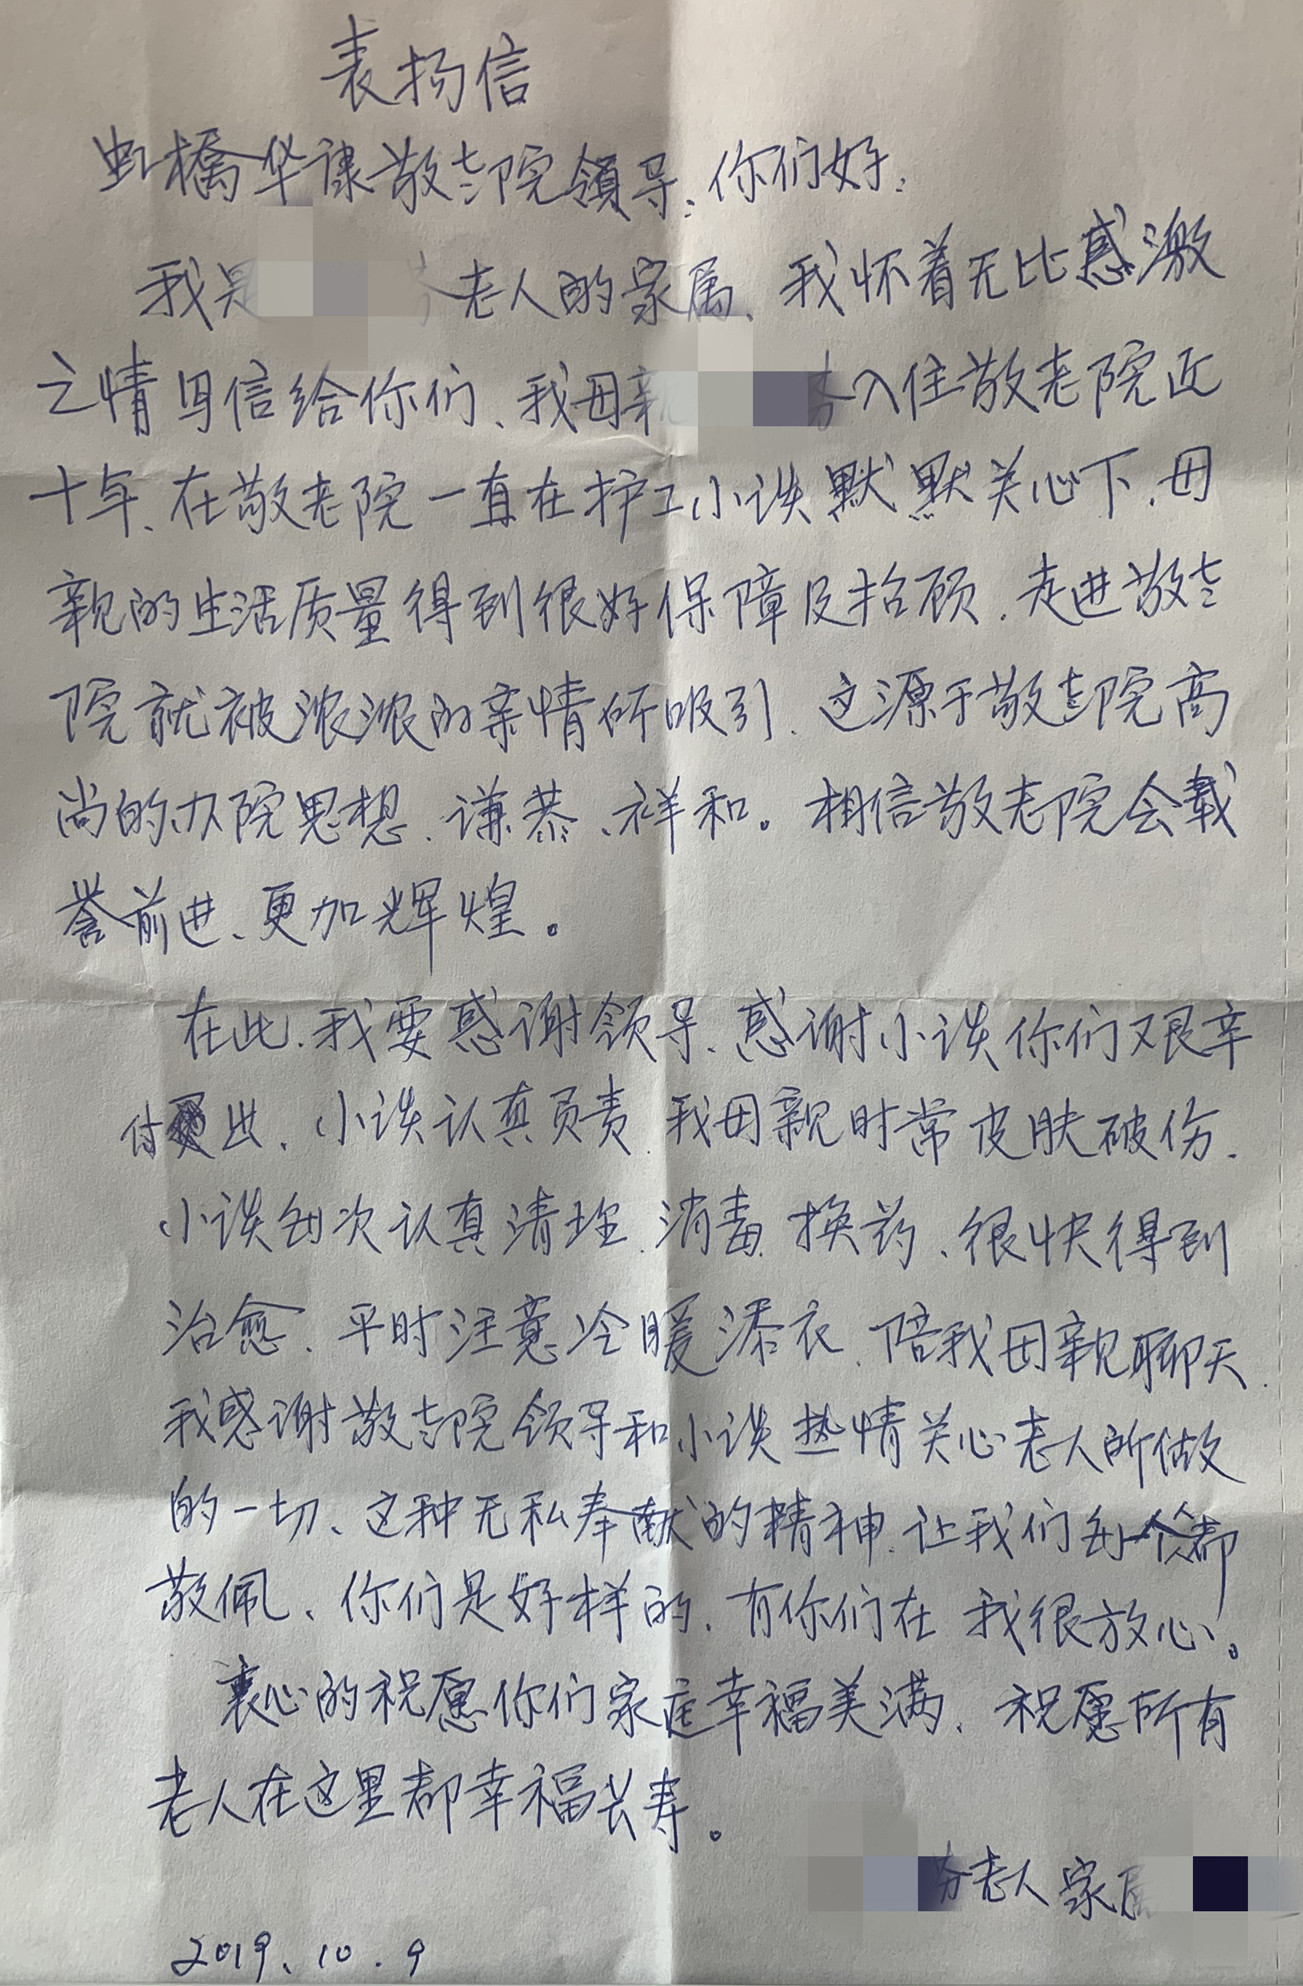 表扬信
虹橋华康敬老院領导、你们好、
我是 老人的家属、我怀着无比感激
之情写信给你们、我母亲 芬入住敬老院近
十年、在敬老院一直在护工小谈默默关心下、母
亲的生活质量得到很好保障及抬顾、走进敬老
院就被浓浓的亲情所吸引、这源于敬老院高
尚的办院思想、谦恭、祥和。相信敬老院会载
誉前进、更加辉煌。
在此、我要感谢领导、感谢小谈你们艰辛
付出、小谈认真负责、我母亲时常皮肤破伤、
小谈每次认真清理、消毒、换药、很快得到
治愈、平时注意冷暖添衣、陪我母亲聊天、
我感谢敬老院领导和小谈热情关心老人所做
的一切、这种无私奉献的精神、让我们每个人都
敬佩、你们是好样的、有你们在 我很放心。
衷心的祝愿你们家庭幸福美满、祝愿所有
老人在这里都幸福长寿。
芬老人家属
2019、10.9